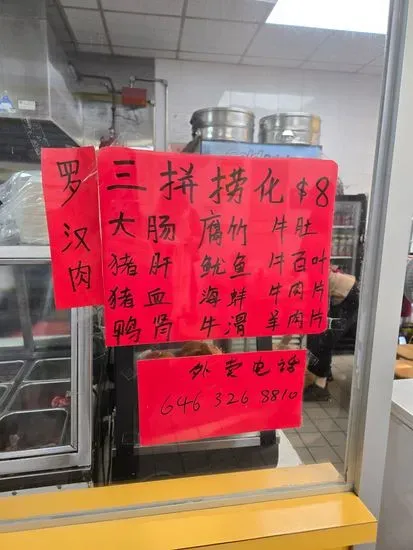 罗汉肉
三拼捞化 $8
大肠 腐竹 牛肚
猪肝 鱿鱼 牛百叶
猪血 海蚌 牛肉片
鸭肾 牛滑 羊肉片
外卖电话
646 326 8810